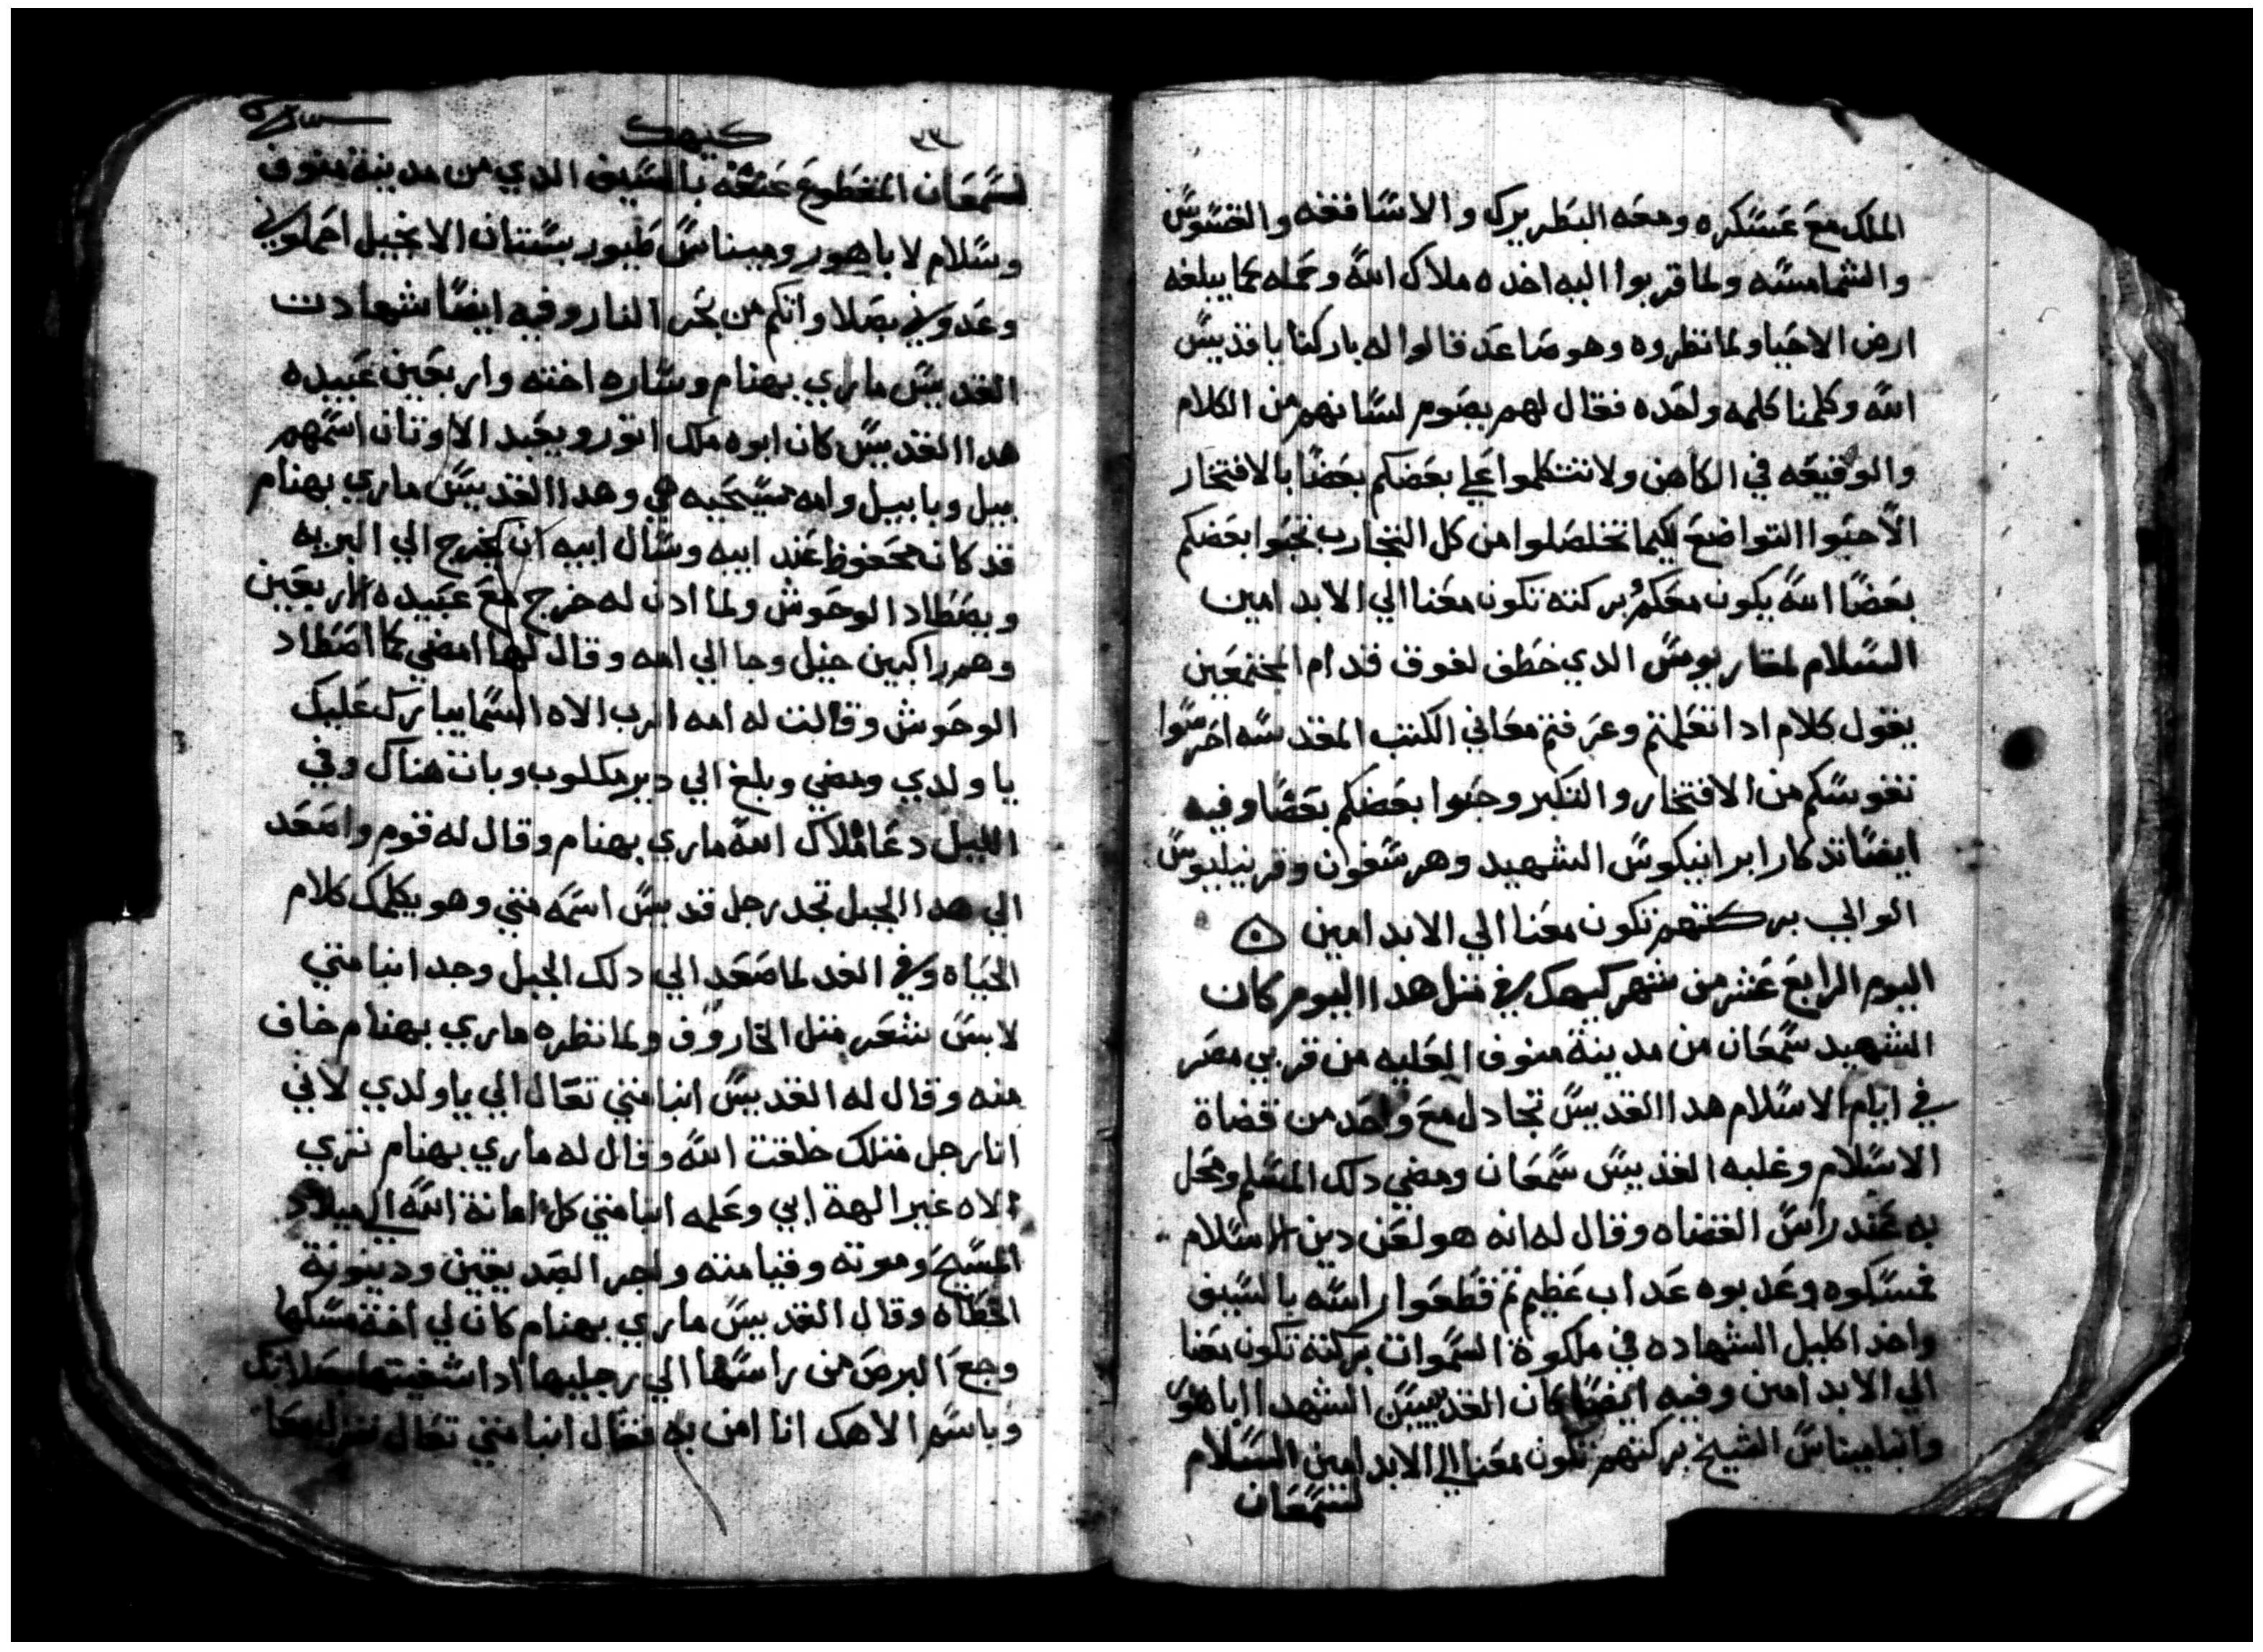 الملك مع عسكره ومعه البطريرك والاساقفه والقسوس
والشمامسه ولما قربوا اليه اخده ملاك الله وحمله كما يبلغه
ارض الاحيا ولما نظروه وهو صاعد قالوا له باركنا يا قديس
الله وكلمنا كلمه واحده فقال لهم يصوم لسانهم من الكلام
والوقيعه في الكاهن ولا تتكلموا علي بعضكم بعضا بالافتخار
الا حبوا التواضع لكيما تخلصلوا من كل التجارب تحبوا بعضكم
بعضا الله يكون معكم بركته تكون معنا الي الابد امين
السلام لمقاريوس الدي خطف لفوق قدام المجتمعين
يقول كلام ادا تعلمتم وعرفتم معاني الكتب المقدسه احرسوا
نفوسكم من الافتخار والتكبر وحبوا بعضكم بعضا وفيه
ايضا تدكار ابرانيكوس الشهيد وهرسفون وقرنيليوس
الوالي بركتهم تكون معنا الي الابد امين ۞
اليوم الرابع عشر من شهر كيهك في متل هدا اليوم كان
الشهيد سمعان من مدينة منوف العليه من قري مصر
في ايام الاسلام هدا القديس تجادل مع واحد من قضاة
الاسلام وغلبه القديس سمعان ومضي دلك المسلم ومحل
به عند راس القضاه وقال له انه هو لعن دين الاسلام
فمسكوه وعدبوه عداب عظيم تم قطعوا راسه بالسيف
واخد اكليل الشهاده في ملكوة السموات بركته تكون معنا
الي الابد امين وفيه ايضا كان القديسين الشهدا اباهور
وانبا ميناس الشيخ بركتهم تكون معنا الي الابد امين السلام
لسمعان
٣٣ كيهك
لسمعان المقطوع عنقه بالسيف الدي من مدينة منوف
وسلام لاباهور وميناس طيور بستان الانجيل احملوني
وعدوني بصلاوانكم من بحر النار وفيه ايضا شهادت
القديس ماري بهنام وساره اخته واربعين عبيده
هدا القديس كان ابوه ملك اتور ويعبد الاوتان اسمهم
بيل وبابيل وامه مسيحيه هي وهدا القديس ماري بهنام
قد كانه محفوظ عند ابيه وسال ابيه ان يخرج الي البريه
ويصطاد الوحوش ولما ادن له خرج مع عبيده الاربعين
وهم راكبين خيل وجا الي امه وقال لها امضي كما اصطاد
الوحوش وقالت له امه الرب الاه السما يبارك عليك
يا ولدي ومضي وبلغ الي دير مكلوب وبات هناك وفي
الليل دعا ملاك الله ماري بهنام وقال له قوم واصعد
الي هدا الجبل تجد رجل قديس اسمه متي وهو يكلمك كلام
الحياه وفي الغد لما صعد الي دلك الجبل وجد انبا متي
لابس شعر متل الخاروف ولما نظره ماري بهنام خاف
منه وقال له القديس انبا متي تعال الي يا ولدي لاني
انا رجل متلك خلقت الله وقال له ماري بهنام تري
الاه غير الهة ابي وعلمه انبا متي كل امانة الله الي ميلاد
المسيح وموته وقيامته واجر الصديقين ودينونة
الخطاه وقال القديس ماري بهنام كان لي اخة مسكها
وجع البرص من راسها الي رجليها ادا شفيتها بصلاتك
وباسم الاهك انا امن به فقال انبا متي تعال ننزل معا